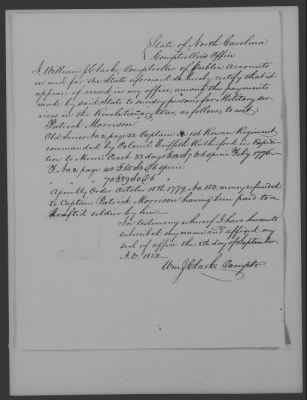 State of North Carolina
Comptrollers Office
I, William J. Clarke, Comptroller of Public Accounts
in and for the State aforesaid do hereby certify that it
appears of record in my office, among the payments
made by said State to sundry persons for Military ser-
vices in the Revolutionary War, as follows to wit;
Patrick Morrison
Old Series No 2, page 32 Captain Regiment,
commanded by Colonel Griffith Rutherford in Expedi-
tion to Moore's Creek 32 days Feby 1776.
No 2 page 40
Again By Order October 18th 1779 No 150, money refunded
to Captain Patrick Morrison having been paid to a
drafted soldier by him.
In testimony whereof I have hereunto
subscribed my name and affixed my
seal of office this 8th day of September
A.D. 1852.
Wm J Clarke Compt